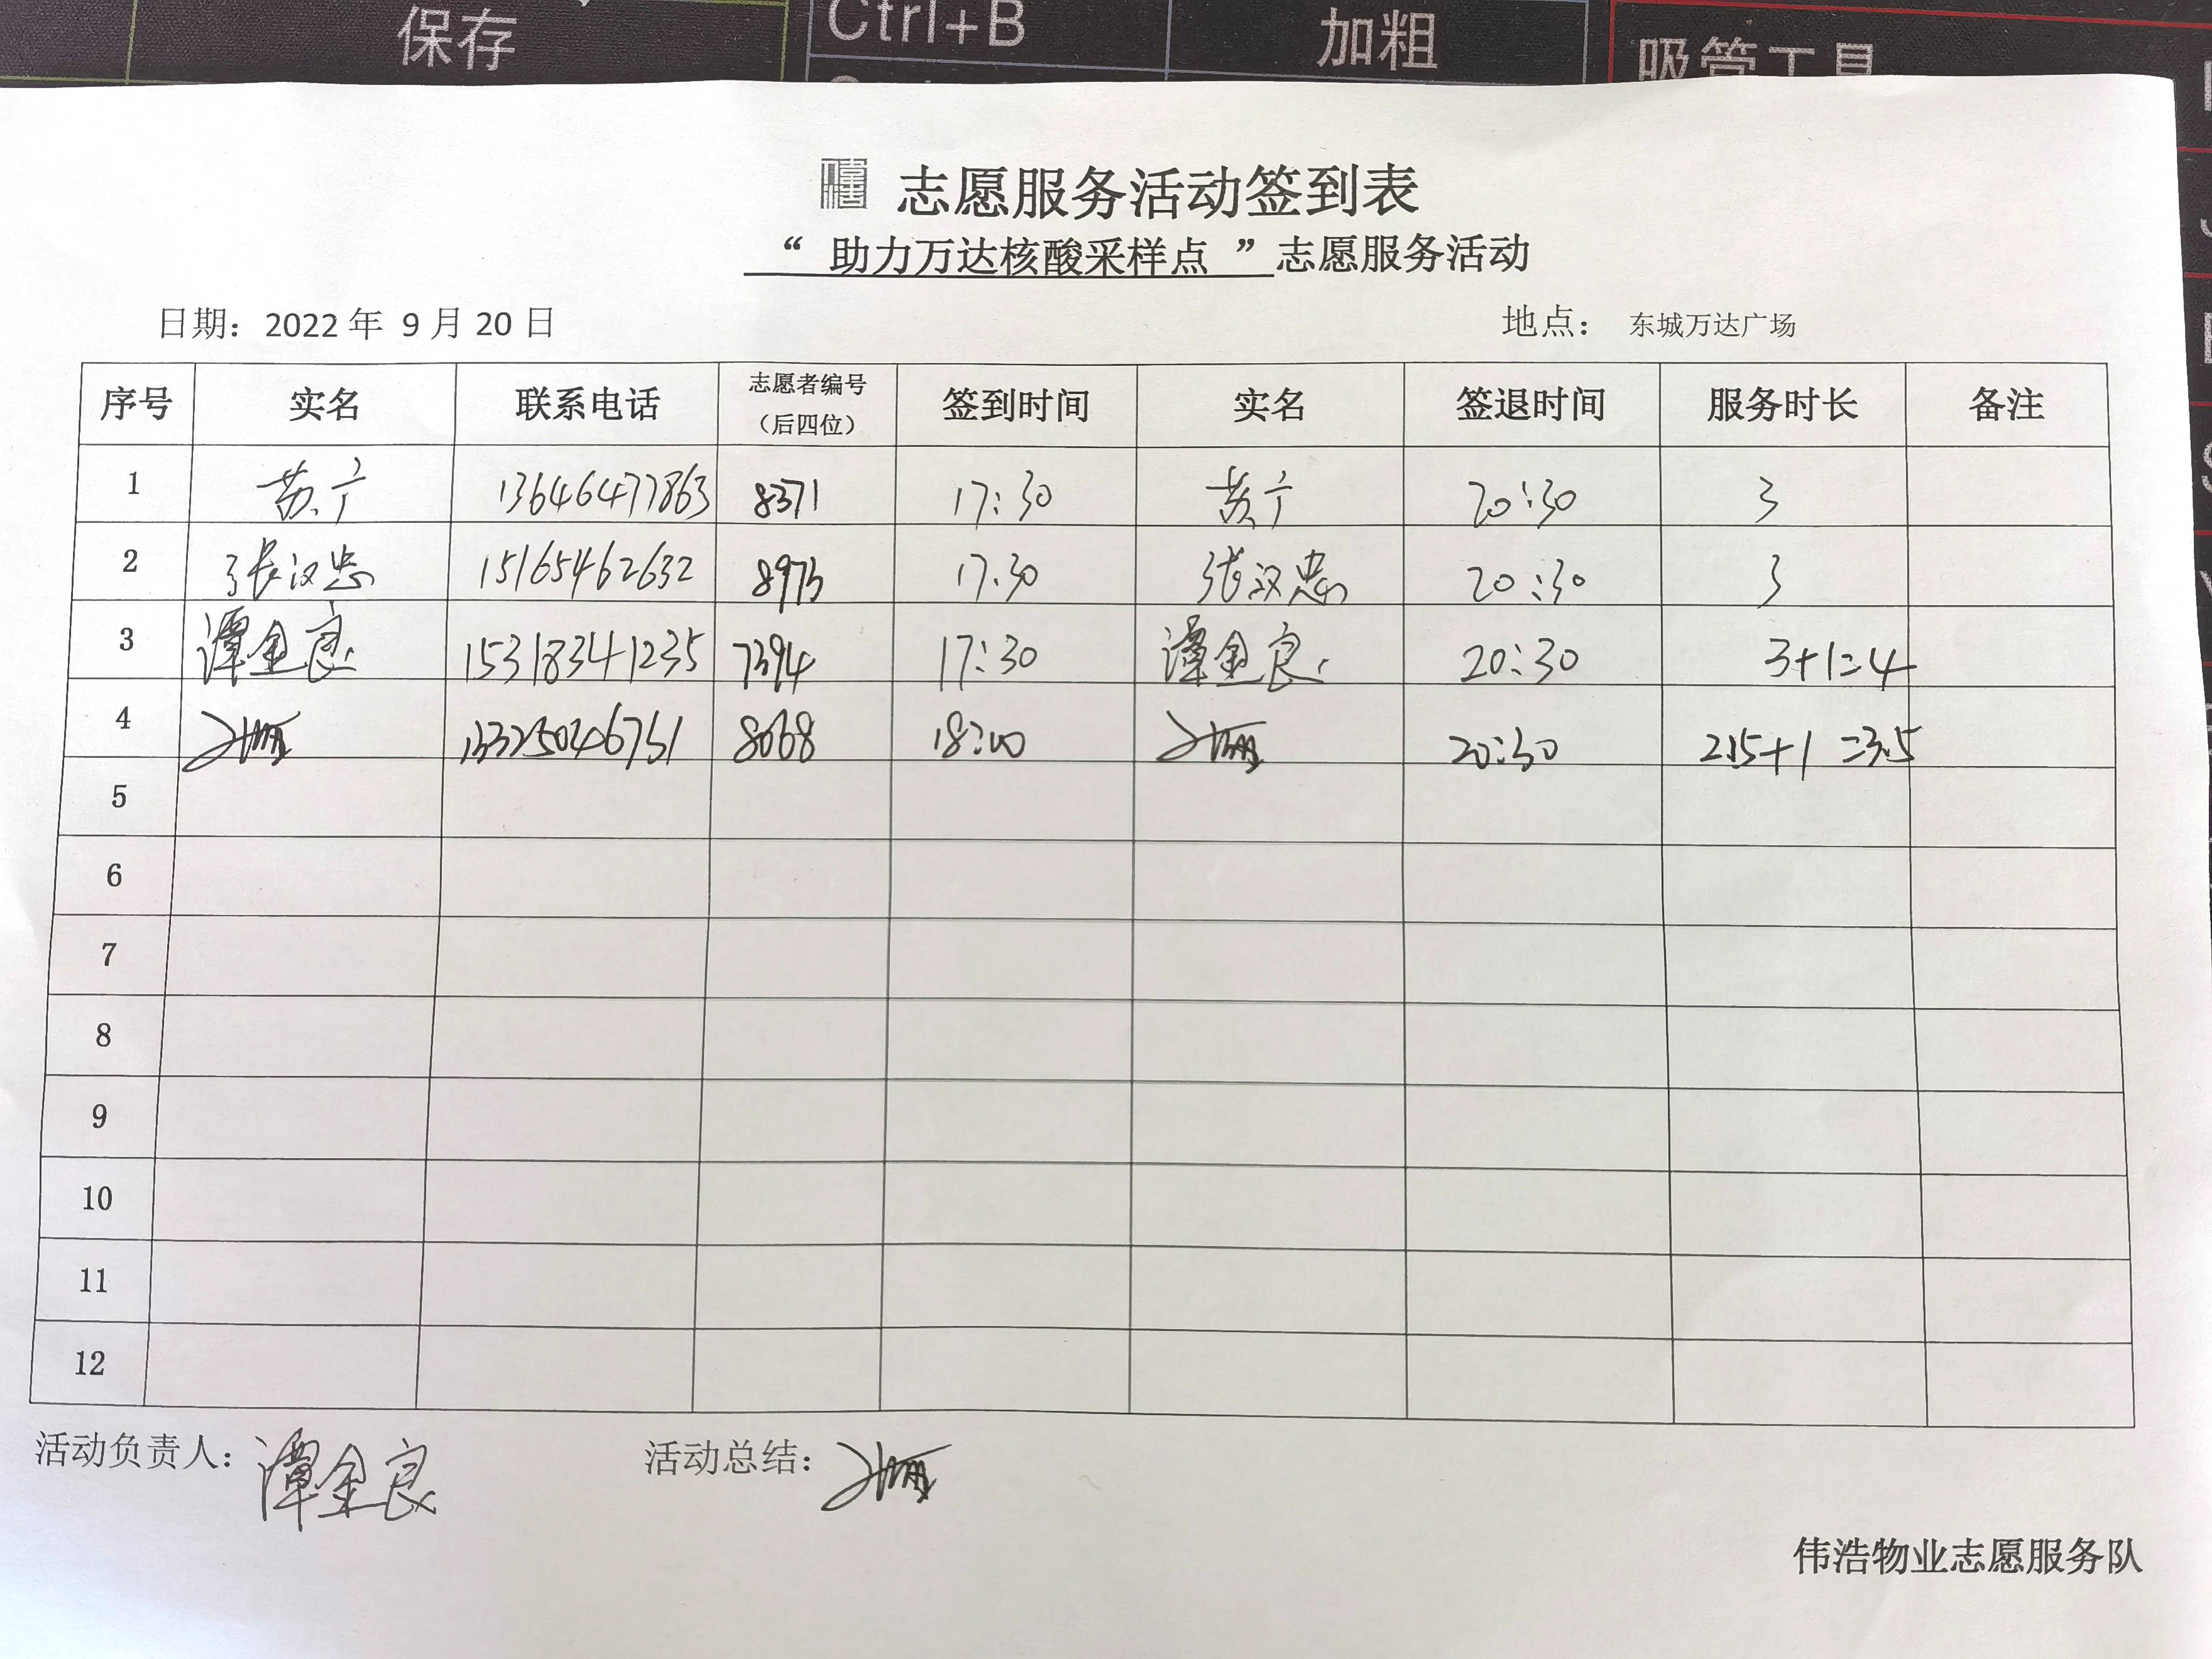 保存 Ctrl+B 加粗 吸管工具
志愿服务活动签到表
“ 助力万达核酸采样点 ”志愿服务活动
日期：2022 年 9 月 20 日 地点： 东城万达广场
序号 实名 联系电话 志愿者编号（后四位） 签到时间 实名 签退时间 服务时长 备注
1 13646477863 8371 17:30 20:30 3
2 张汉忠 15165462632 8973 17:30 张汉忠 20:30 3
3 谭金良 15318341235 7394 17:30 谭金良 20:30 3+1=4
4 8068 18:00 20:30 2.5+1=3.5
5
6
7
8
9
10
11
12
活动负责人：谭金良 活动总结：
伟浩物业志愿服务队